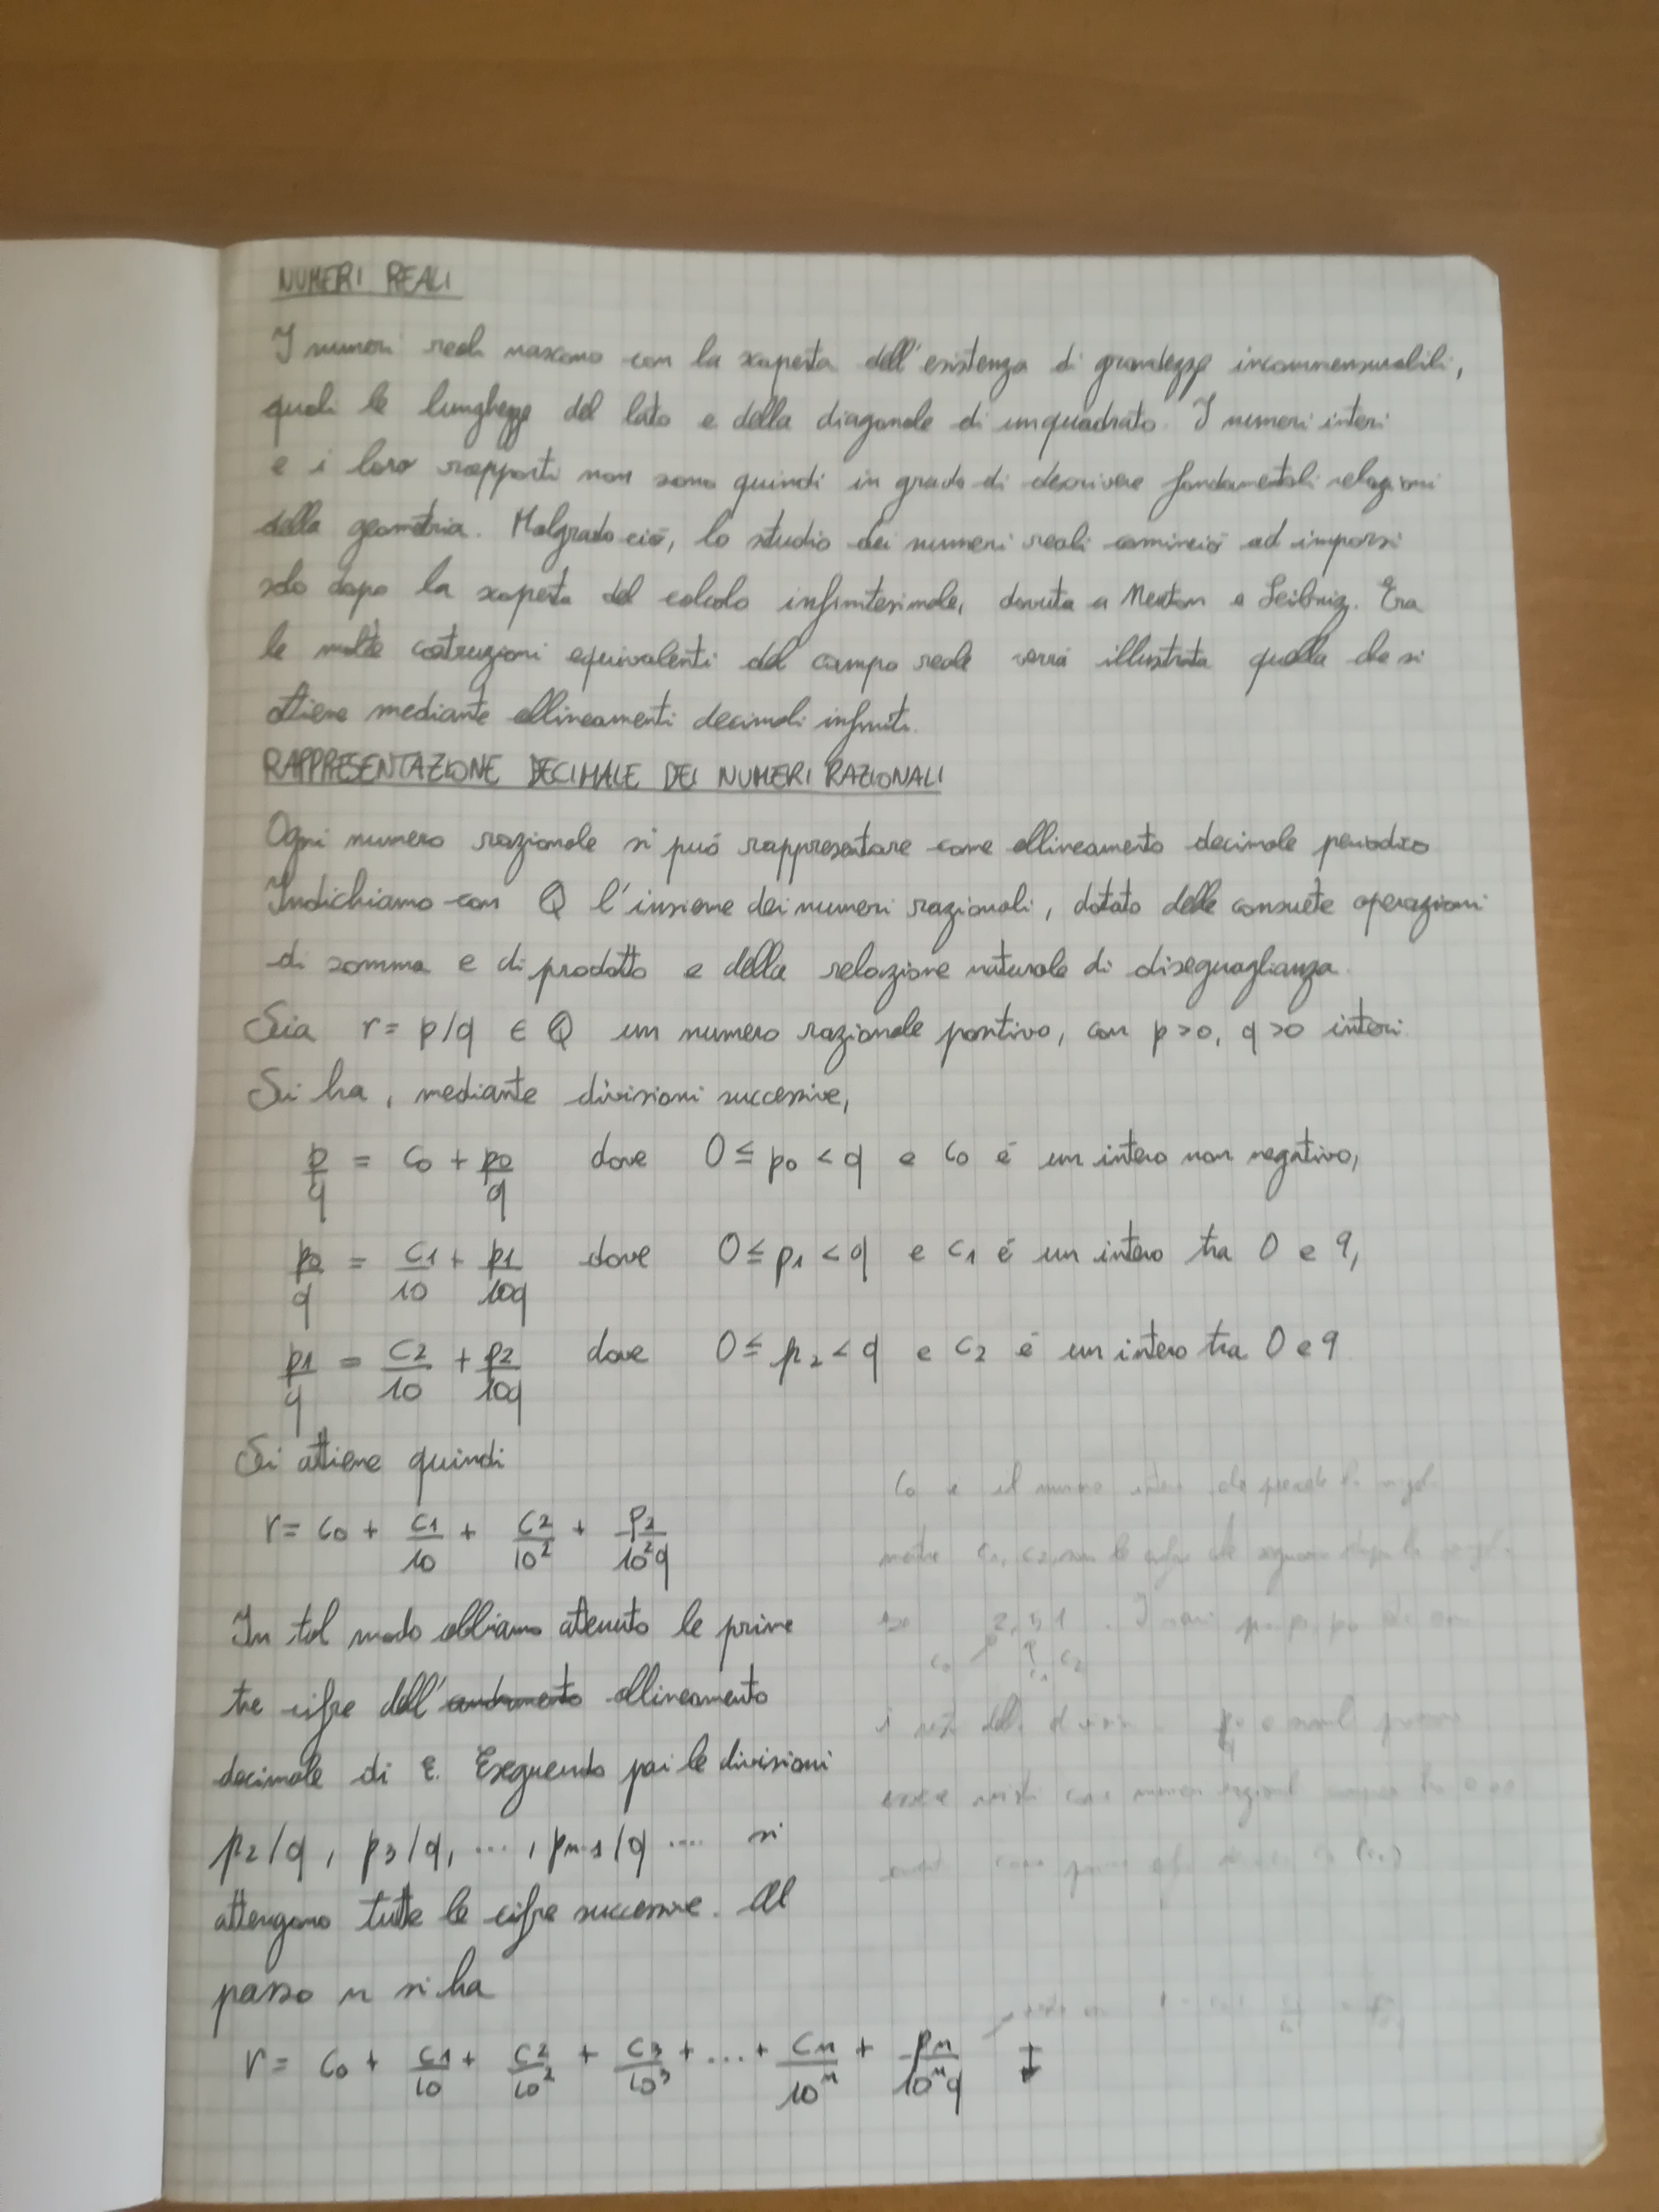 NUMERI REALI
I numeri reali nascono con la scoperta dell'esistenza di grandezze incommensurabili,
quali le lunghezze del lato e della diagonale di un quadrato. I numeri interi
e i loro rapporti non sono quindi in grado di descrivere fondamentali relazioni
della geometria. Malgrado ciò, lo studio dei numeri reali cominciò ad imporsi
solo dopo la scoperta del calcolo infinitesimale, dovuta a Newton e Leibniz. Era
le molte costruzioni equivalenti del campo reale verrà illustrata quella che si
ottiene mediante allineamenti decimali infiniti.
RAPPRESENTAZIONE DECIMALE DEI NUMERI RAZIONALI
Ogni numero razionale si può rappresentare come allineamento decimale periodico
Indichiamo con Q l'insieme dei numeri razionali, dotato delle consuete operazioni
di somma e di prodotto e della relazione naturale di diseguaglianza.
Sia r = p/q ∈ Q un numero razionale positivo, con p>0, q>0 interi.
Si ha, mediante divisioni successive,
p/q = c0 + p0/q dove 0 ≤ p0 < q e c0 é un intero non negativo,
p0/q = c1/10 + p1/10q dove 0 ≤ p1 < q e c1 é un intero tra 0 e 9,
p1/q = c2/10 + p2/10q dove 0 ≤ p2 < q e c2 é un intero tra 0 e 9
Si ottiene quindi
r = c0 + c1/10 + c2/10² + p2/10²q
In tal modo abbiamo ottenuto le prime
tre cifre dell' allineamento
decimale di E. Eseguendo poi le divisioni
p2/q, p3/q, ..., pn-1/q .... si
ottengono tutte le cifre successive. Al
passo n si ha
r = c0 + c1/10 + c2/10² + c3/10³ + ... + cn/10ⁿ + pn/10ⁿq
c0 è il numero intero che precede la
mentre c1, c2 sono le cifre che seguono dopo la
2,51
c0 c1 c2